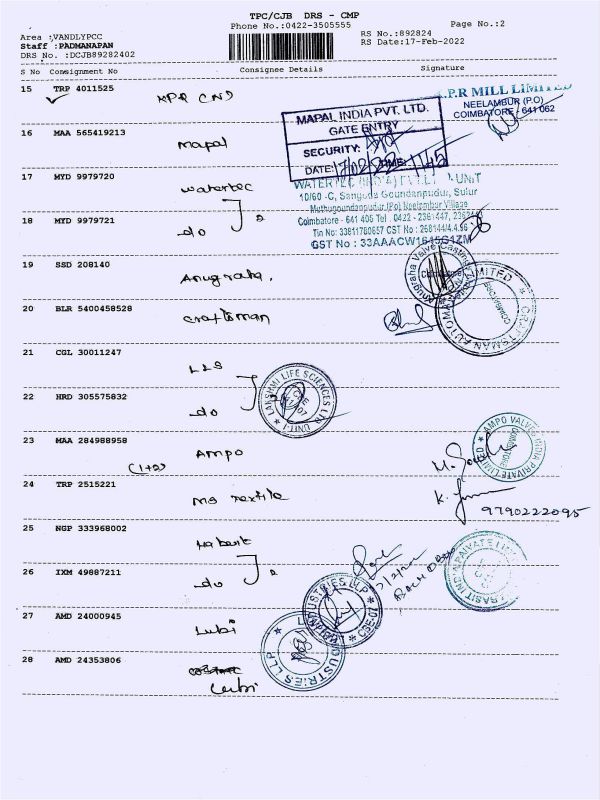 TPC/CJB DRS - CMP
Phone No.:0422-3505555
Page No.:2
Area :VANDLYPCC
RS No.:892824
Staff :PADMANAPAN
RS Date:17-Feb-2022
DRS No. :DCJB89282402
S No Consignment No Consignee Details Signature
15 TRP 4011525
KPR CNS
K.P.R MILL LIMITED
NEELAMBUR (P.O)
COIMBATORE - 641 062
16 MAA 565419213
Mapal
MAPAL INDIA PVT. LTD.
GATE ENTRY
SECURITY:
DATE: TIME:
17 MYD 9979720
watertec
WATERTEC (INDIA) PVT LTD UNIT
10/60 -C, Sangoda Goundanpudur, Sulur
Muthugoundanpudur (Po) Neelambur Village
Coimbatore - 641 406 Tel : 0422 -
GST No : 33AAACW1645G1ZM
18 MYD 9979721
do
19 SSD 208140
Anugraha,
Anugraha Valve Castings
Coimbatore
20 BLR 5400458528
craftsman
CRAFTSMAN AUTOMATION LIMITED
COIMBATORE
21 CGL 30011247
LLS
22 HRD 305575832
do
LAKSHMI LIFE SCIENCES LTD
UNIT-I
23 MAA 284988958
Ampo
(1+2)
AMPO VALVES INDIA PRIVATE LIMITED
COIMBATORE
24 TRP 2515221
ms textile
9790222095
25 NGP 333968002
Habasit
26 IXM 49887211
do
27 AMD 24000945
Lubi
INDUSTRIES LLP
CBE-07
28 AMD 24353806
Lubi
INDUSTRIES LLP